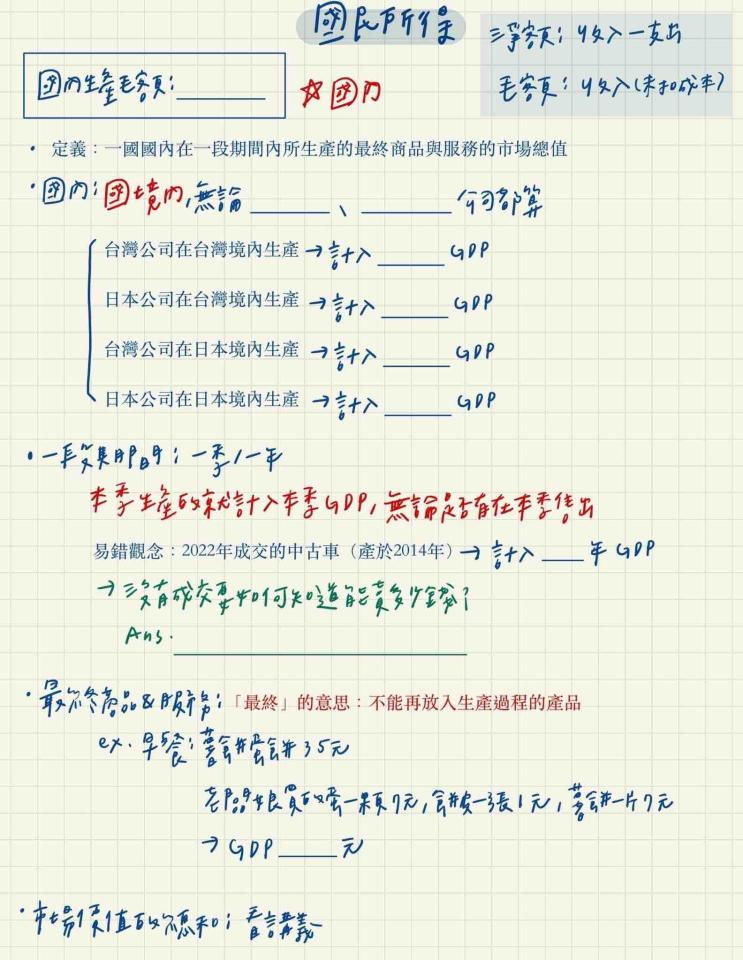 國民所得
淨額：收入－支出
毛額：收入(未扣成本)
國內生產毛額：________
☆國內
• 定義：一國國內在一段期間內所生產的最終商品與服務的市場總值
• 國內：國境內，無論________、________公司都算
台灣公司在台灣境內生產 → 計入______ GDP
日本公司在台灣境內生產 → 計入______ GDP
台灣公司在日本境內生產 → 計入______ GDP
日本公司在日本境內生產 → 計入______ GDP
• 一段期間：一季/一年
本季生產的就計入本季GDP，無論是否有在本季售出
易錯觀念：2022年成交的中古車（產於2014年）→ 計入____年 GDP
→ 沒有成交要如何知道能賣多少錢？
Ans. ________________
• 最終商品&服務：「最終」的意思：不能再放入生產過程的產品
ex. 早餐：薯餅蛋餅35元
老闆娘買的蛋一顆7元，餅皮一張1元，薯餅一片7元
→ GDP______元
• 市場價值的總和：看講義